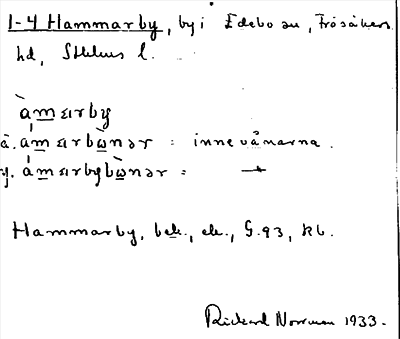 1-4 Hammarby, by i Edebo sn, Frösåkers
hd, Sthlms l.
àmarby
ä. ámarbònər = innevånarna.
y. ámarbybònər =
Hammarby, bek., ek., G.93, Kb.
Rickard Norrman 1933.